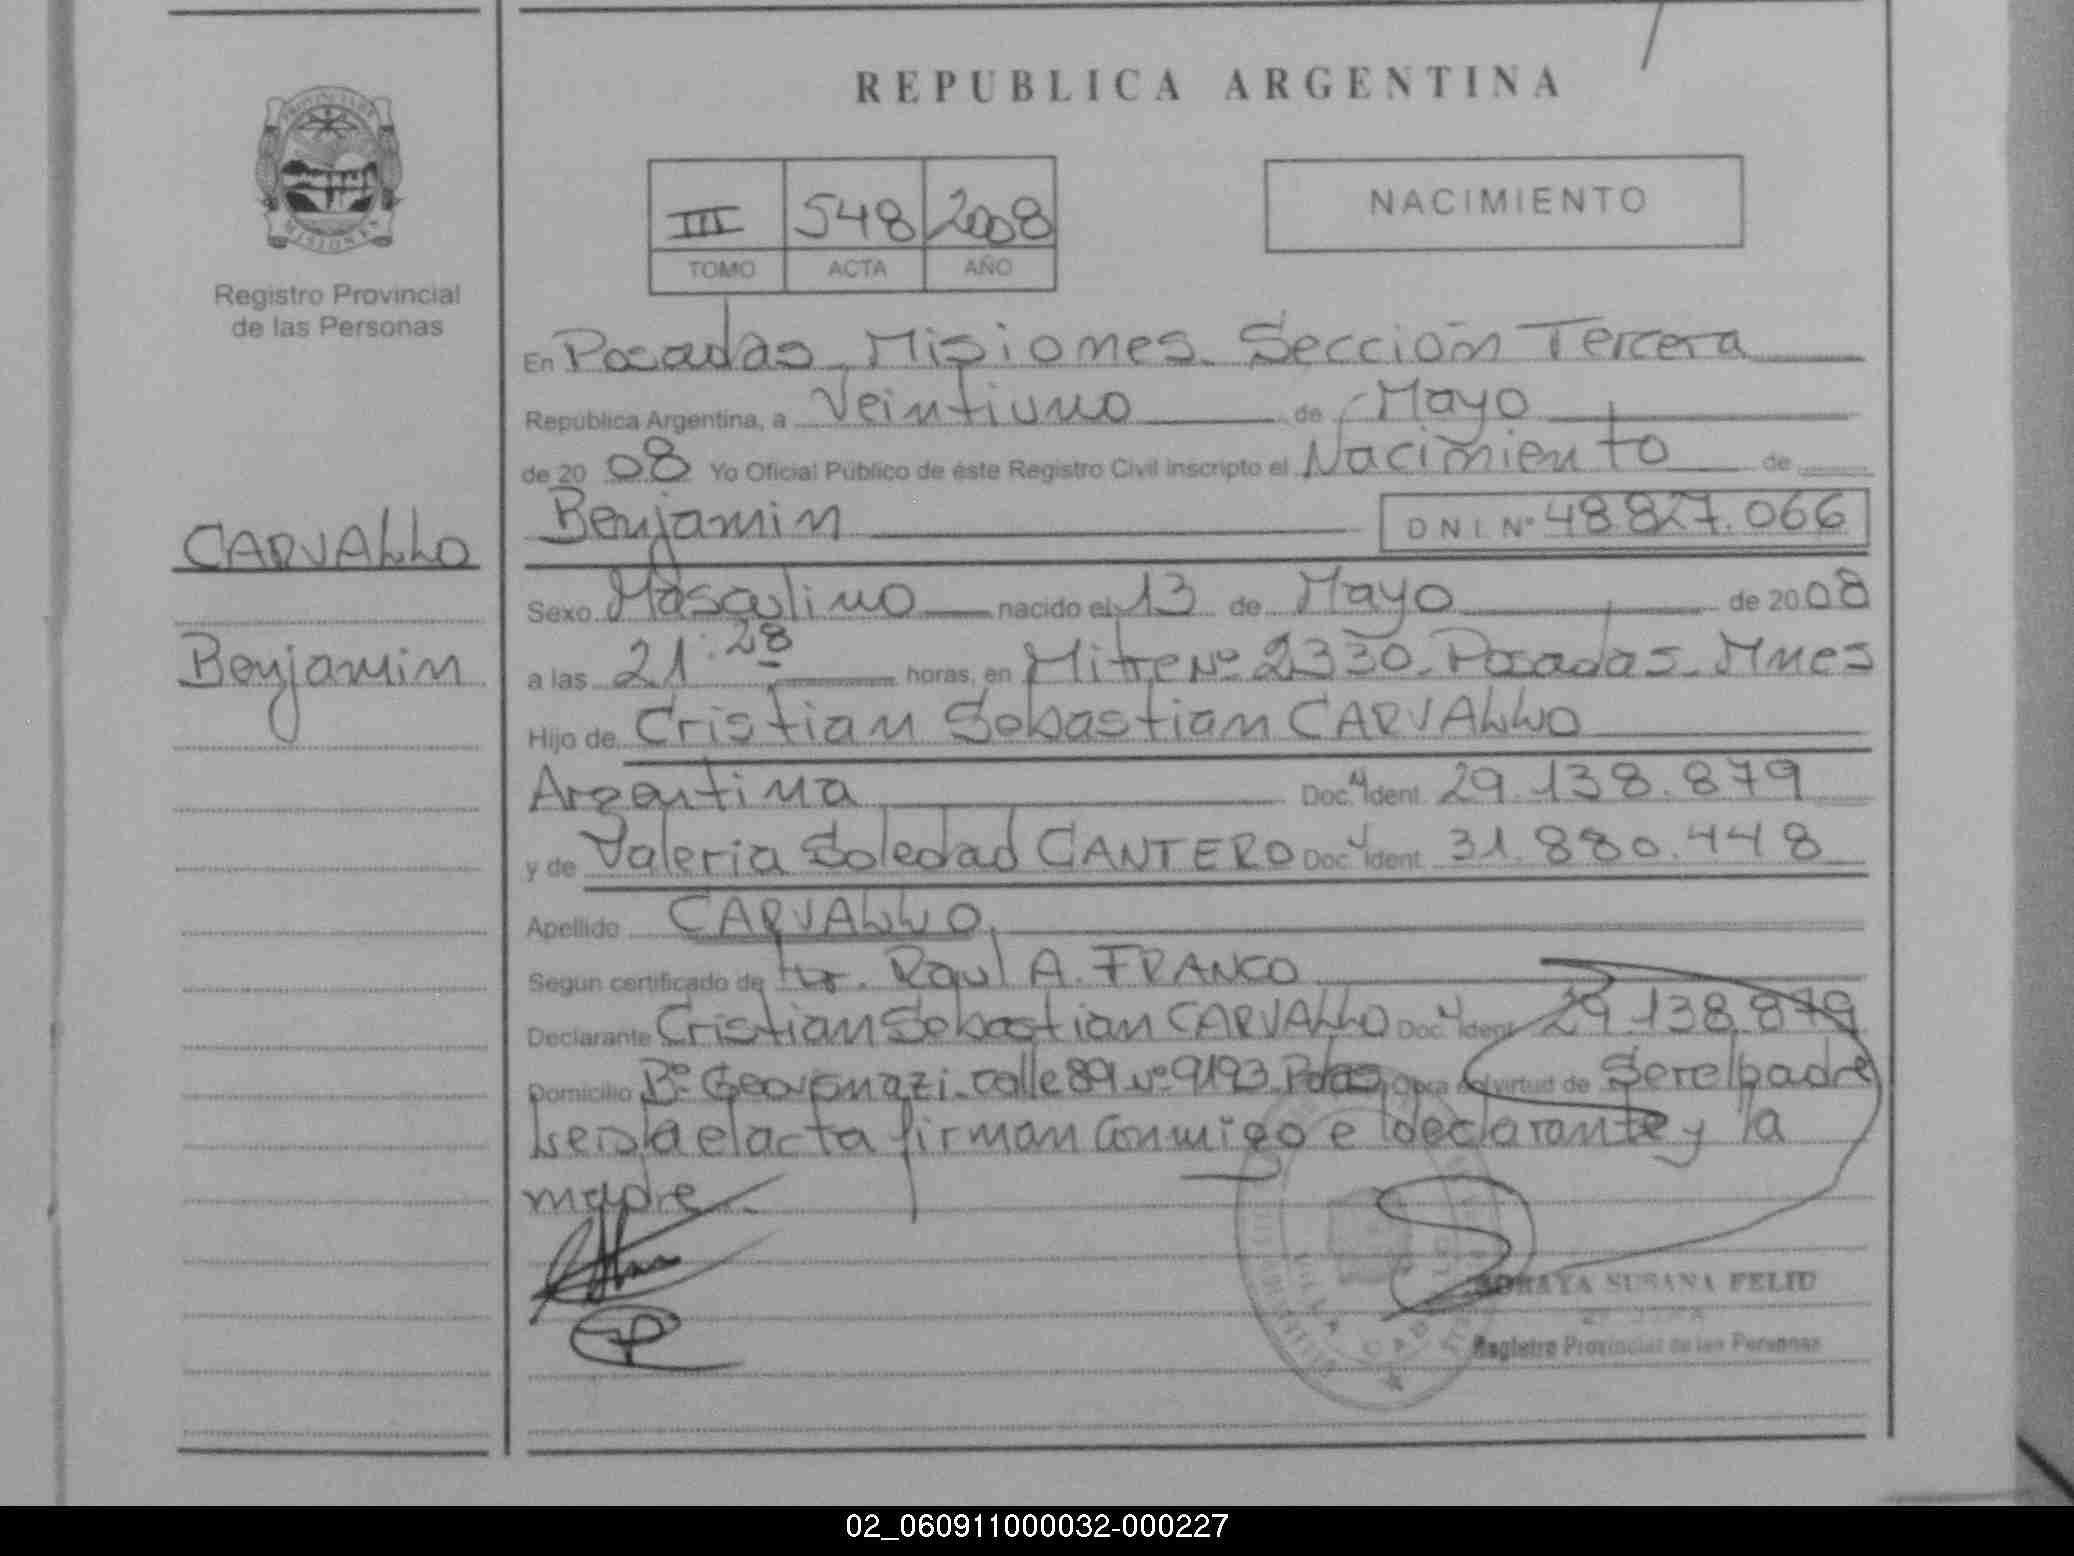 REPUBLICA ARGENTINA
PROVINCIA DE
MISIONES
Registro Provincial
de las Personas
III 548 2008
TOMO ACTA AÑO
NACIMIENTO
En Posadas, Misiones. Sección Tercera
República Argentina, a Veintiuno de Mayo
de 20 08 Yo Oficial Público de éste Registro Civil inscripto el Nacimiento de
CARVALLO
Benjamin
Benjamin D N I. Nº 48.827.066
Sexo Masculino nacido el 13 de Mayo de 20 08
a las 21:28 horas, en Mitre Nº 2330. Posadas. Mnes
Hijo de Cristian Sebastian CARVALLO
Argentina Doc. Ident. 29.138.879
y de Valeria Soledad CANTERO Doc. Ident. 31.880.448
Apellido CARVALLO.
Según certificado de Raul A. FRANCO
Declarante Cristian Sebastian CARVALLO Doc. Ident. 29.138.879
Domicilio Bº calle 89 Nº 9193 Pdas Obra en virtud de Ser el padre
Leida el acta firman conmigo el declarante y la
madre.
SORAYA SUSANA FELID
Registro Provincial de las Personas
02_060911000032-000227